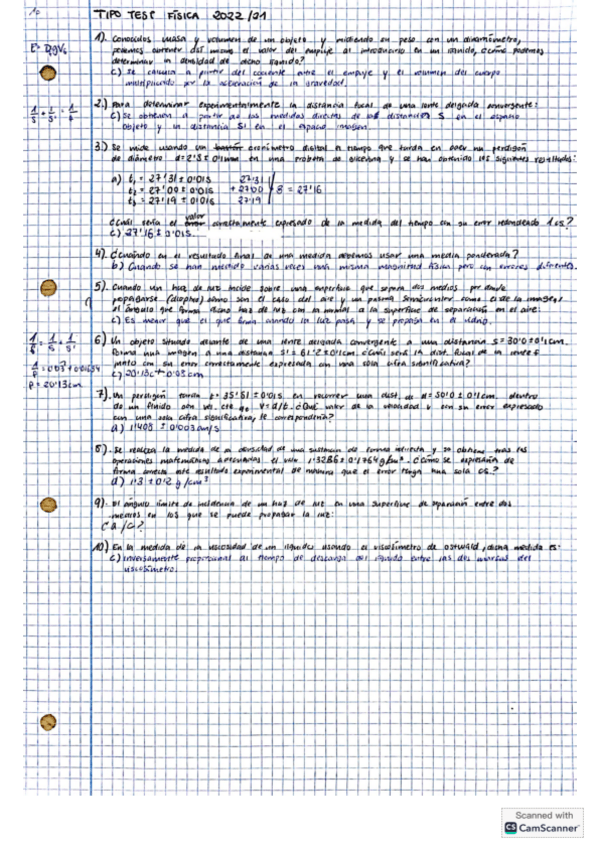 TIPO TEST FÍSICA 2022/21
1). Conocidos masa y volumen de un objeto y midiendo su peso con un dinamómetro,
podemos obtener del mismo el valor del empuje al introducirlo en un líquido, ¿cómo podemos
E = DgVc
determinar la densidad de dicho líquido?
c) Se calcula a partir del cociente entre el empuje y el volumen del cuerpo
multiplicando por la aceleración de la gravedad.
2.) Para determinar experimentalmente la distancia focal de una lente delgada convergente:
1/s + 1/s' = 1/f
c) Se obtienen a partir de las medidas directas de las distancias S en el espacio
objeto y la distancia S' en el espacio imagen.
3.) Se mide usando un cronómetro digital el tiempo que tarda en caer un perdigón
de diámetro d = 2'5 ± 0'1 en una probeta de glicerina y se han obtenido los siguientes resultados:
a) t₁ = 27'31 ± 0'015 27'31
t₂ = 27'00 ± 0'015 + 27'00 = 27'16
t₃ = 27'19 ± 0'015 27'19
¿cuál sería el valor correctamente expresado de la medida del tiempo con su error redondeado 1cs?
c) 27'16 ± 0'015.
4). ¿cuándo en el resultado final de una medida debemos usar una media ponderada?
b) Cuando se han medido varias veces una misma magnitud física pero con errores diferentes.
5). Cuando un haz de luz incide sobre una superficie que separa dos medios por donde
propagarse (dioptrio) como son el caso del aire y un prisma semicircular como es de la imagen,
el ángulo que forma dicho haz de luz con la normal a la superficie de separación en el aire:
c) Es menor que el que forma cuando la luz pasa y se propaga en el vidrio.
6) Un objeto situado delante de una lente delgada convergente a una distancia s = 30'0 ± 0'1cm.
forma una imagen a una distancia s' = 61'2 ± 0'1cm. ¿cuál será la dist. focal de la lente
junto con su error correctamente expresada con una sola cifra significativa?
P = 20'13cm
c) 20'13c ± 0'03cm
7.) Un perdigón tarda t = 35'51 ± 0'015 en recorrer una dist. de d = 50'0 ± 0'1cm. dentro
de un fluido con vel. cte de V = d/t. ¿Qué valor de la velocidad y con su error expresado
con una sola cifra significativa, le correspondería?
a) 1'408 ± 0'003cm/s
8). Se realiza la medida de la densidad de una sustancia de forma indirecta y se obtiene tras las
operaciones matemáticas adecuadas el valor 1'3286 ± 0'1764 g/cm³. ¿Cómo se expresaría de
forma correcta este resultado experimental de manera que el error tenga una sola cs?
d) 1'3 ± 0'2 g/cm³
9). El ángulo límite de incidencia de un haz de luz en una superficie de separación entre dos
medios en los que se puede propagar la luz:
10.) En la medida de la viscosidad de un líquido usando el viscosímetro de ostwald, dicha medida es:
c) Inversamente proporcional al tiempo de descarga del líquido entre las dos marcas del
viscosímetro.
Scanned with
CS CamScanner